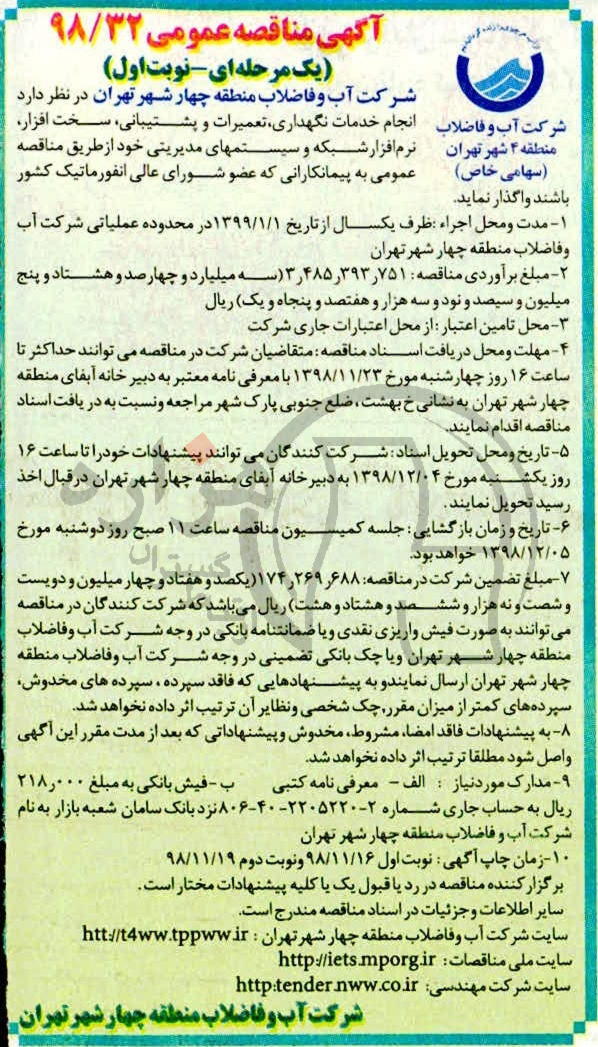 آگهی مناقصه عمومی ۹۸/۳۲
(یک مرحله‌ای - نوبت اول)
شرکت آب و فاضلاب
منطقه ۴ شهر تهران
(سهامی خاص)
شرکت آب و فاضلاب منطقه چهار شهر تهران در نظر دارد
انجام خدمات نگهداری، تعمیرات و پشتیبانی، سخت افزار،
نرم‌افزار شبکه و سیستمهای مدیریتی خود از طریق مناقصه
عمومی به پیمانکارانی که عضو شورای عالی انفورماتیک کشور
باشند واگذار نماید.
۱- مدت ومحل اجراء : ظرف یکسال از تاریخ ۱۳۹۹/۱/۱ در محدوده عملیاتی شرکت آب
وفاضلاب منطقه چهار شهر تهران
۲- مبلغ برآوردی مناقصه : ۳٫۴۸۵٫۳۹۳٫۷۵۱ (سه میلیارد و چهارصد و هشتاد و پنج
میلیون و سیصد و نود و سه هزار و هفتصد و پنجاه و یک) ریال
۳- محل تامین اعتبار : از محل اعتبارات جاری شرکت
۴- مهلت ومحل دریافت اسناد مناقصه : متقاضیان شرکت در مناقصه می توانند حداکثر تا
ساعت ۱۶ روز چهارشنبه مورخ ۱۳۹۸/۱۱/۲۳ با معرفی نامه معتبر به دبیر خانه آبفای منطقه
چهار شهر تهران به نشانی خ بهشت ، ضلع جنوبی پارک شهر مراجعه ونسبت به دریافت اسناد
مناقصه اقدام نمایند.
۵- تاریخ ومحل تحویل اسناد : شرکت کنندگان می توانند پیشنهادات خودرا تا ساعت ۱۶
روز یکشنبه مورخ ۱۳۹۸/۱۲/۰۴ به دبیر خانه آبفای منطقه چهار شهر تهران در قبال اخذ
رسید تحویل نمایند.
۶- تاریخ و زمان بازگشایی : جلسه کمیسیون مناقصه ساعت ۱۱ صبح روز دوشنبه مورخ
۱۳۹۸/۱۲/۰۵ خواهد بود.
۷- مبلغ تضمین شرکت در مناقصه : ۱۷۴٫۲۶۹٫۶۸۸ (یکصد و هفتاد و چهار میلیون و دویست
و شصت و نه هزار و ششصد و هشتاد و هشت) ریال می‌باشد که شرکت کنندگان در مناقصه
می توانند به صورت فیش واریزی نقدی ویا ضمانتنامه بانکی در وجه شرکت آب وفاضلاب
منطقه چهار شهر تهران ویا چک بانکی تضمینی در وجه شرکت آب وفاضلاب منطقه
چهار شهر تهران ارسال نمایند و به پیشنهادهایی که فاقد سپرده ، سپرده های مخدوش،
سپرده‌های کمتر از میزان مقرر، چک شخصی ونظایر آن ترتیب اثر داده نخواهد شد.
۸- به پیشنهادات فاقد امضا، مشروط، مخدوش و پیشنهاداتی که بعد از مدت مقرر این آگهی
واصل شود مطلقا ترتیب اثر داده نخواهد شد.
۹- مدارک مورد نیاز : الف - معرفی نامه کتبی ب- فیش بانکی به مبلغ ۲۱۸٫۰۰۰
ریال به حساب جاری شماره ۲-۲۲۰۵۲۲۰-۴۰-۸۰۶ نزد بانک سامان شعبه بازار به نام
شرکت آب و فاضلاب منطقه چهار شهر تهران
۱۰- زمان چاپ آگهی : نوبت اول ۹۸/۱۱/۱۶ ونوبت دوم ۹۸/۱۱/۱۹
برگزار کننده مناقصه در رد یا قبول یک یا کلیه پیشنهادات مختار است.
سایر اطلاعات وجزئیات در اسناد مناقصه مندرج است.
سایت شرکت آب وفاضلاب منطقه چهار شهر تهران : htt://t4ww.tppww.ir
سایت ملی مناقصات : http://iets.mporg.ir
سایت شرکت مهندسی: http:tender.nww.co.ir
شرکت آب و فاضلاب منطقه چهار شهر تهران